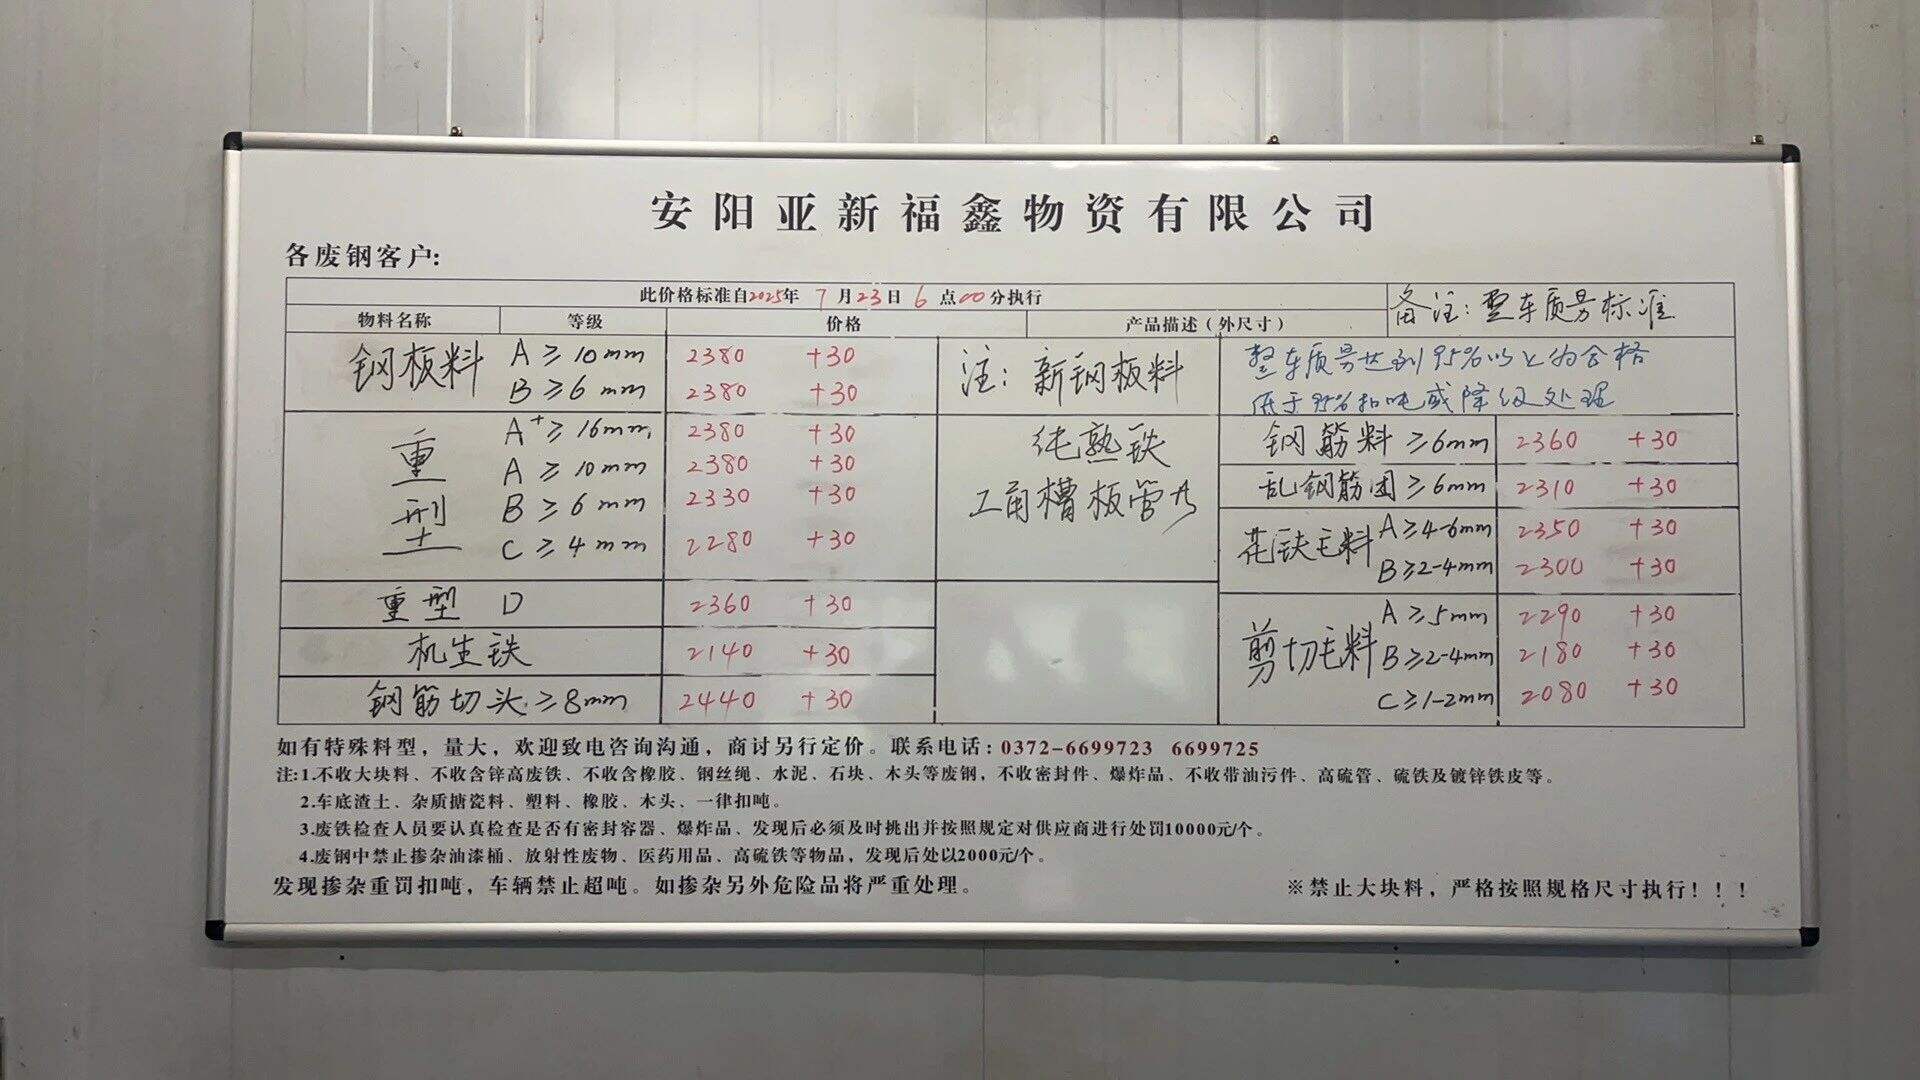 安阳亚新福鑫物资有限公司
各废钢客户:
此价格标准自2025年 7月23日 6点00分执行
备注: 整车质量标准
物料名称 等级 价格 产品描述(外尺寸)
钢板料 A ≥ 10mm 2380 +30
B ≥ 6mm 2380 +30
注: 新钢板料
整车质量达到95%以上为合格
低于95%扣吨或降级处理
重型 A+ ≥ 16mm 2380 +30
A ≥ 10mm 2380 +30
B ≥ 6mm 2330 +30
C ≥ 4mm 2280 +30
纯熟铁
工角槽板管
钢筋料 ≥6mm 2360 +30
乱钢筋团 ≥6mm 2310 +30
花铁毛料 A ≥4-6mm 2350 +30
B ≥2-4mm 2300 +30
重型 D 2360 +30
机生铁 2140 +30
钢筋切头 ≥8mm 2440 +30
剪切毛料 A ≥5mm 2290 +30
B ≥2-4mm 2180 +30
C ≥1-2mm 2080 +30
如有特殊料型，量大，欢迎致电咨询沟通，商讨另行定价。联系电话: 0372-6699723 6699725
注:1.不收大块料、不收含锌高废铁、不收含橡胶、钢丝绳、水泥、石块、木头等废钢，不收密封件、爆炸品、不收带油污件、高硫管、硫铁及镀锌铁皮等。
2.车底渣土、杂质搪瓷料、塑料、橡胶、木头、一律扣吨。
3.废铁检查人员要认真检查是否有密封容器、爆炸品、发现后必须及时挑出并按照规定对供应商进行处罚10000元/个。
4.废钢中禁止掺杂油漆桶、放射性废物、医药用品、高硫铁等物品，发现后处以2000元/个。
发现掺杂重罚扣吨，车辆禁止超吨。如掺杂另外危险品将严重处理。
※禁止大块料，严格按照规格尺寸执行！！！